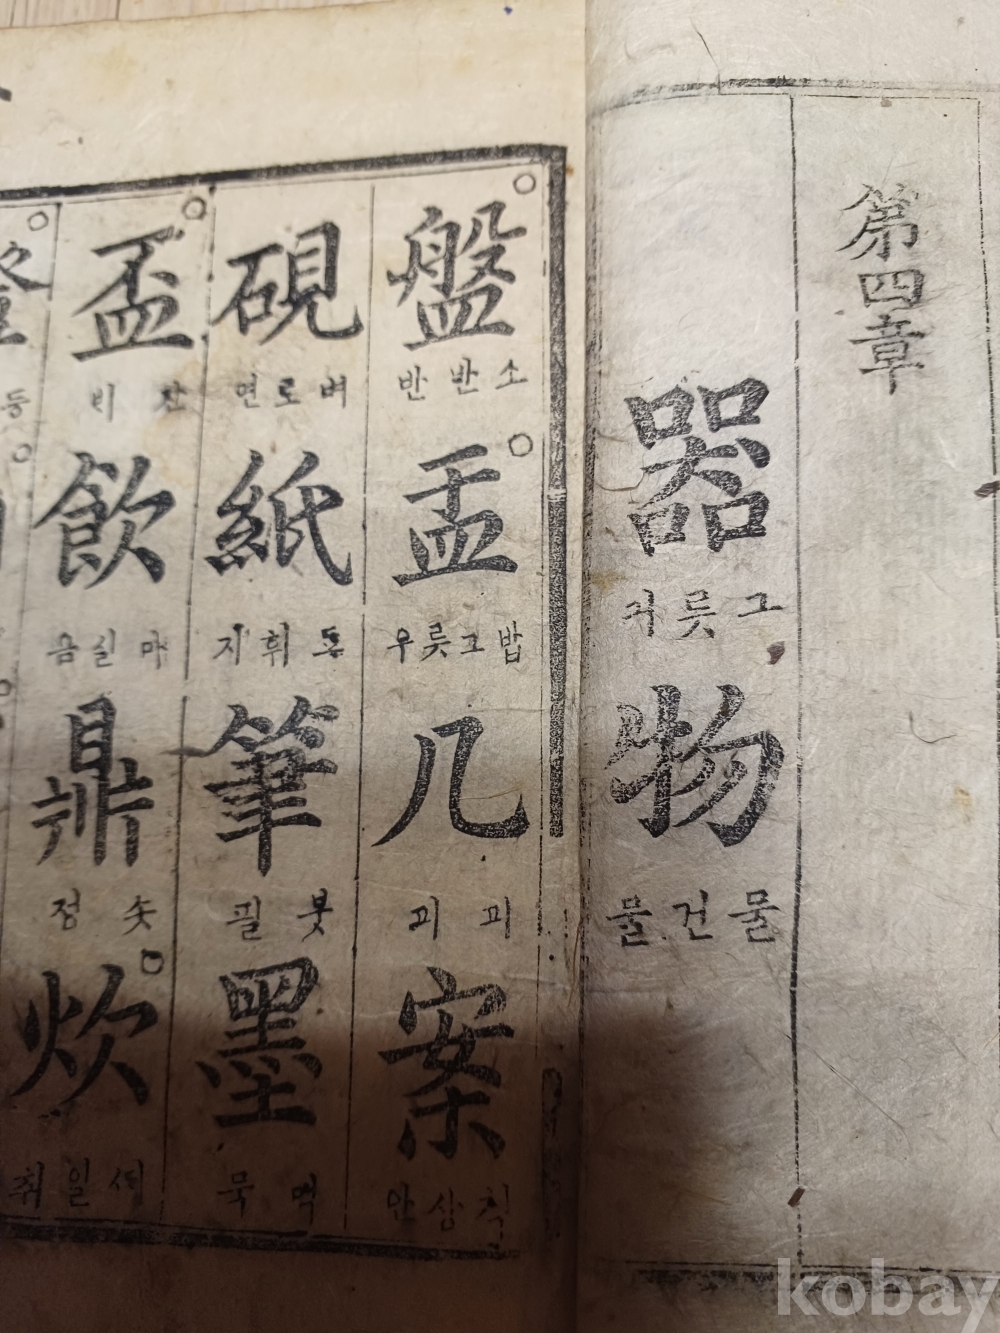 第四章
器
그릇긔
物
물건물
盤
소반반
盂
밥그릇우
几
案
칙상안
硯
벼로연
紙
筆
붓필
墨
먹묵
盃
잔비
飮
마실음
鼎
솟정
炊
등
kobay